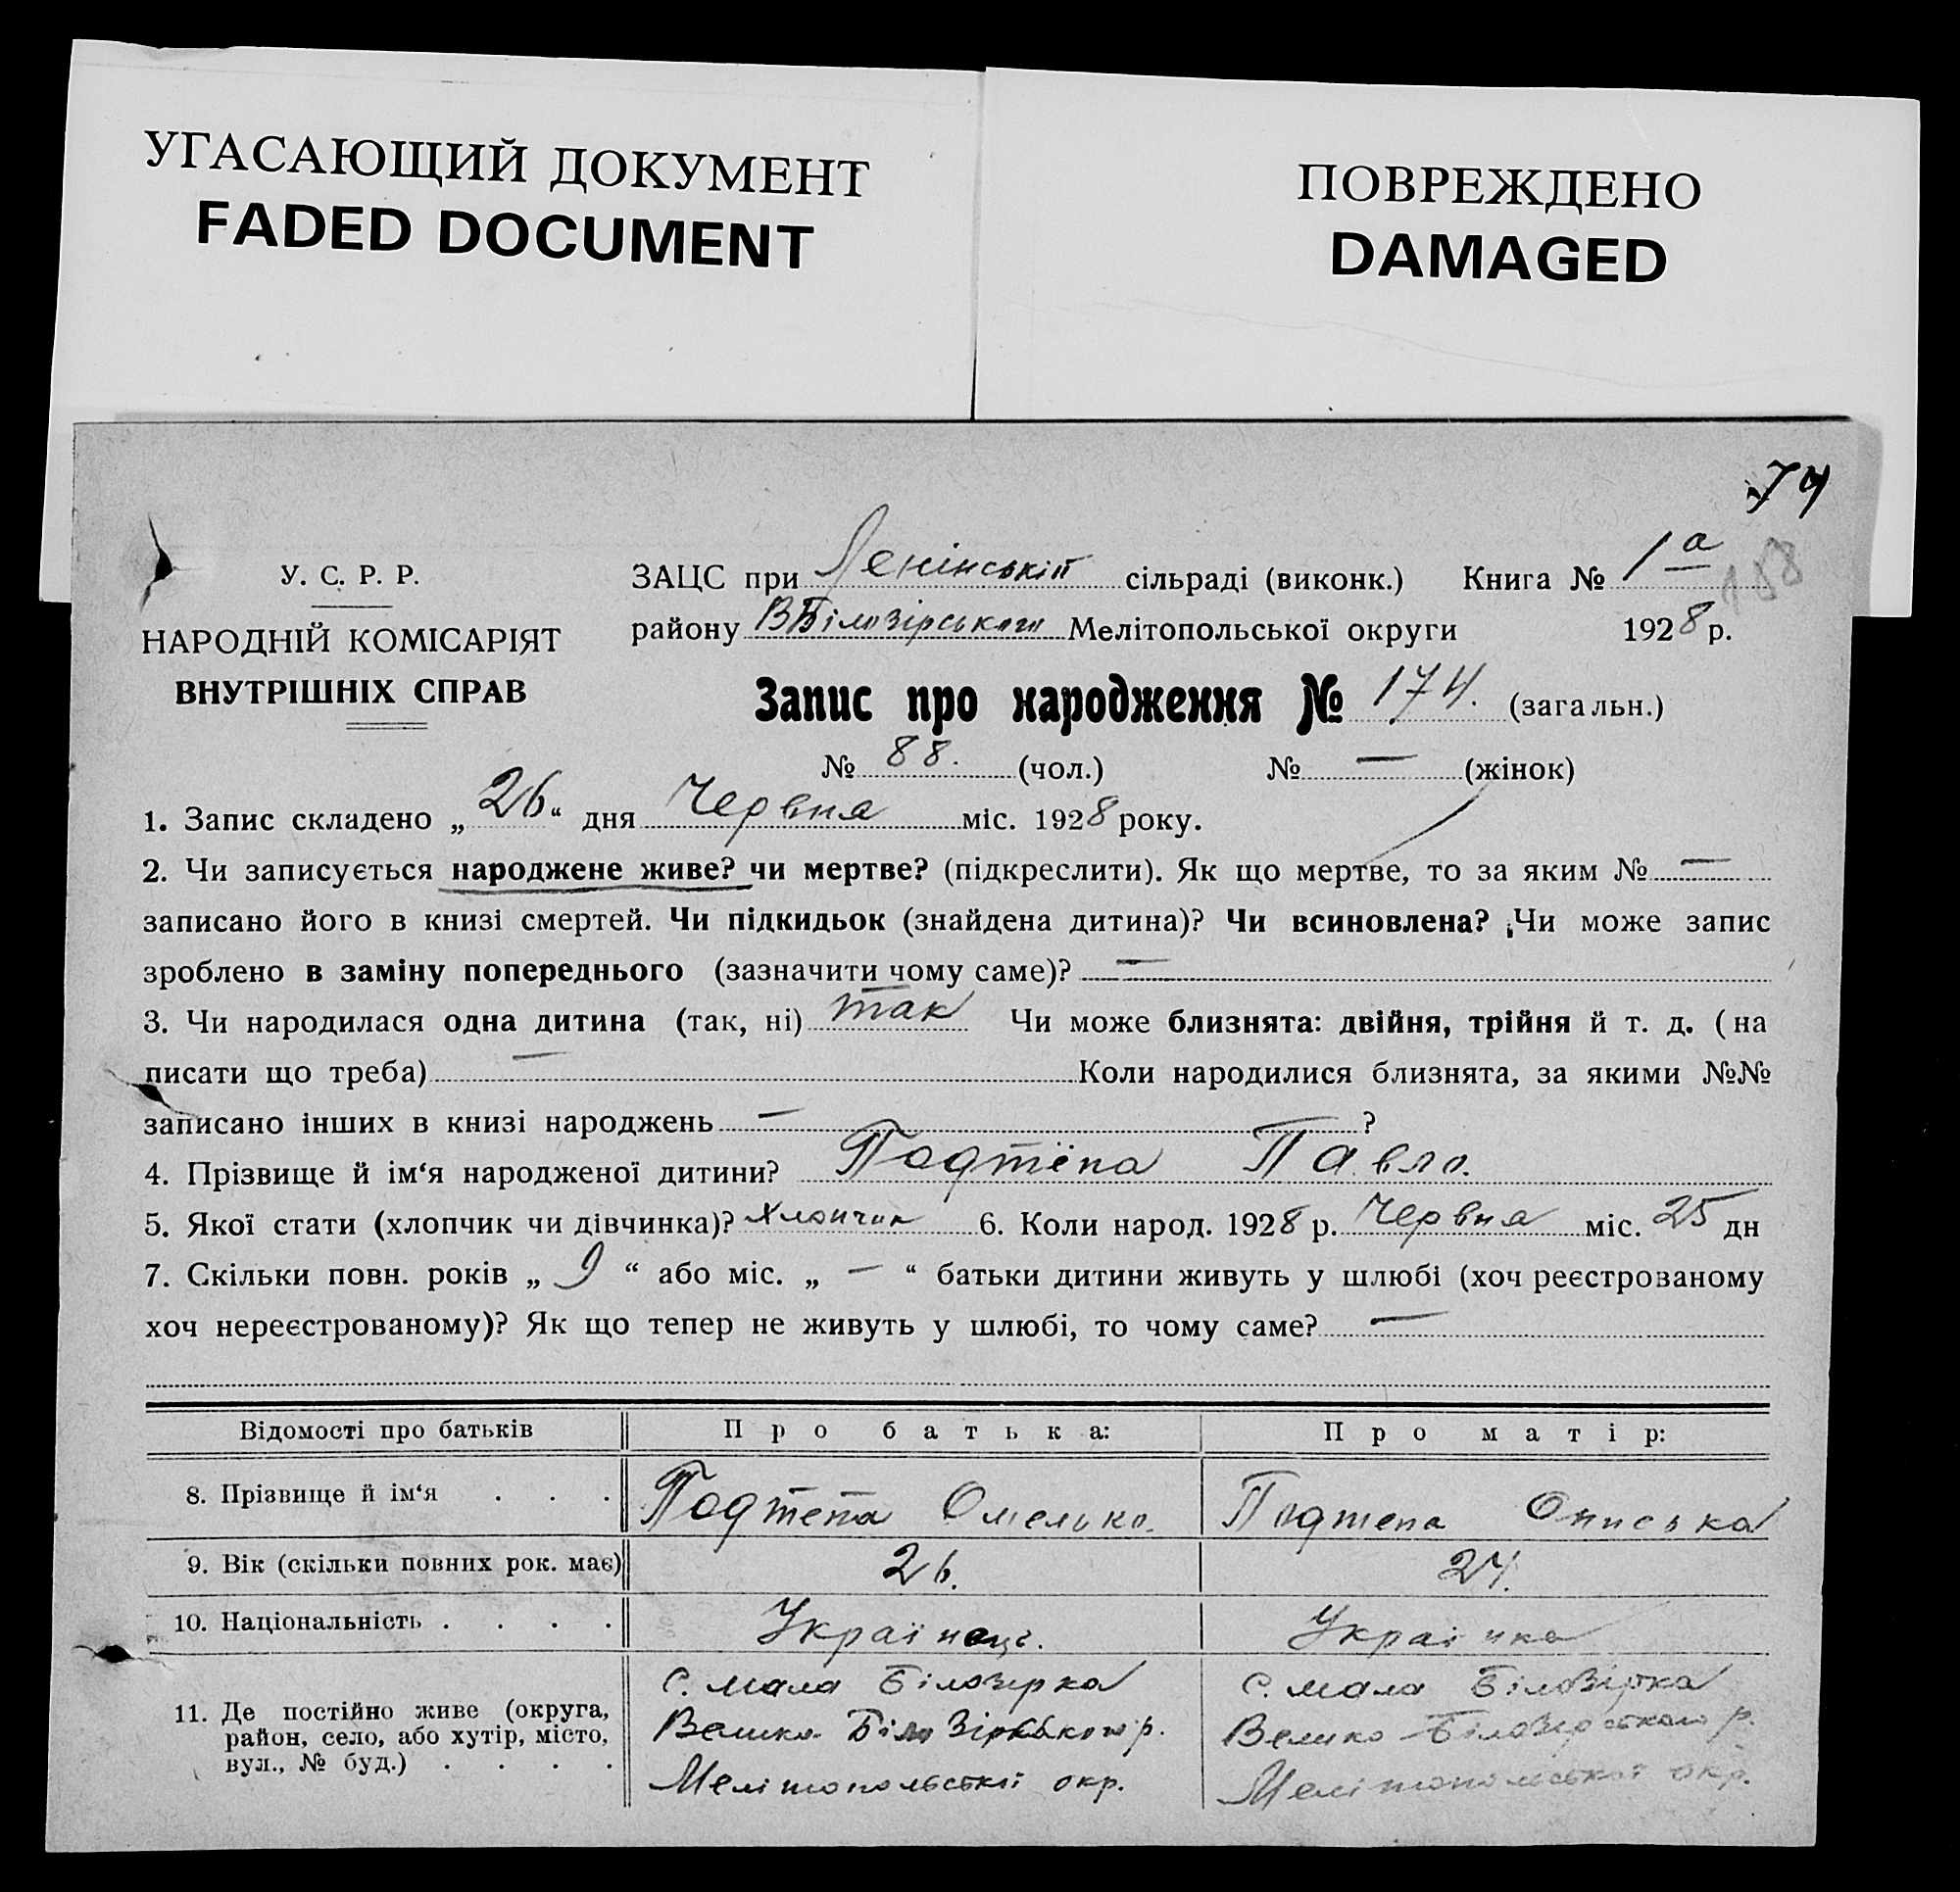 УГАСАЮЩИЙ ДОКУМЕНТ
FADED DOCUMENT
ПОВРЕЖДЕНО
DAMAGED
74
158
У. С. Р. Р.
НАРОДНІЙ КОМІСАРІЯТ
ВНУТРІШНІХ СПРАВ
ЗАЦС при Ленінській сільраді (виконк.) Книга № 1а
району ВБілозірського Мелітопольської округи 1928 р.
Запис про народження № 174. (загальн.)
№ 88. (чол.) № — (жінок)
1. Запис складено „ 26 “ дня Червня міс. 1928 року.
2. Чи записується народжене живе? чи мертве? (підкреслити). Як що мертве, то за яким № —
записано його в книзі смертей. Чи підкидьок (знайдена дитина)? Чи всиновлена? Чи може запис
зроблено в заміну попереднього (зазначити чому саме)? —
3. Чи народилася одна дитина (так, ні) так Чи може близнята: двійня, трійня й т. д. (на
писати що треба) — Коли народилися близнята, за якими №№
записано інших в книзі народжень — ?
4. Прізвище й ім‘я народженої дитини? Подтєпа Павло.
5. Якої стати (хлопчик чи дівчинка)? хлопчик 6. Коли народ. 1928 р. Червня міс. 25 дн
7. Скільки повн. років „ 9 “ або міс. „ — “ батьки дитини живуть у шлюбі (хоч реєстрованому
хоч нереєстрованому)? Як що тепер не живуть у шлюбі, то чому саме? —
Відомості про батьків Про батька: Про матір:
8. Прізвище й ім‘я . . . Подтепа Омелько. Подтепа Ониська
9. Вік (скільки повних рок. має) 26. 24.
10. Національність . . . . Українець. Українка
11. Де постійно живе (округа, район, село, або хутір, місто, вул., № буд.) . . . .
с. мала Білозирка
Велико Білозірського р.
Мелітопольської окр.
с. мала Білозірка
Велико Білозирського р.
Мелітопольської окр.